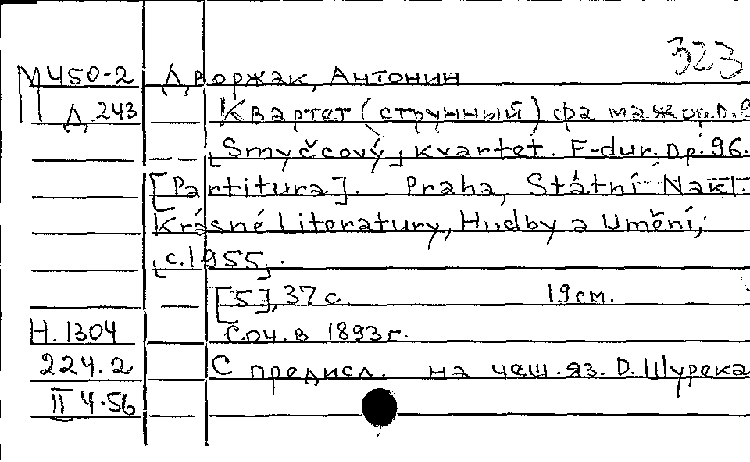 323
М450-2 Дворжак, Антонин
Д 243 Квартет (струнный) фа мажор.
[Smyčcový] kvartet. F-dur. Op. 96.
[Partitura]. Praha, Státní Nakl.
Krásné Literatury, Hudby a Umění,
[c. 1955].
[5], 37 с. 19 см.
Н. 1304 Соч. в 1893 г.
224.2 С предисл. на чеш. яз. О. Шурека
II 4.56